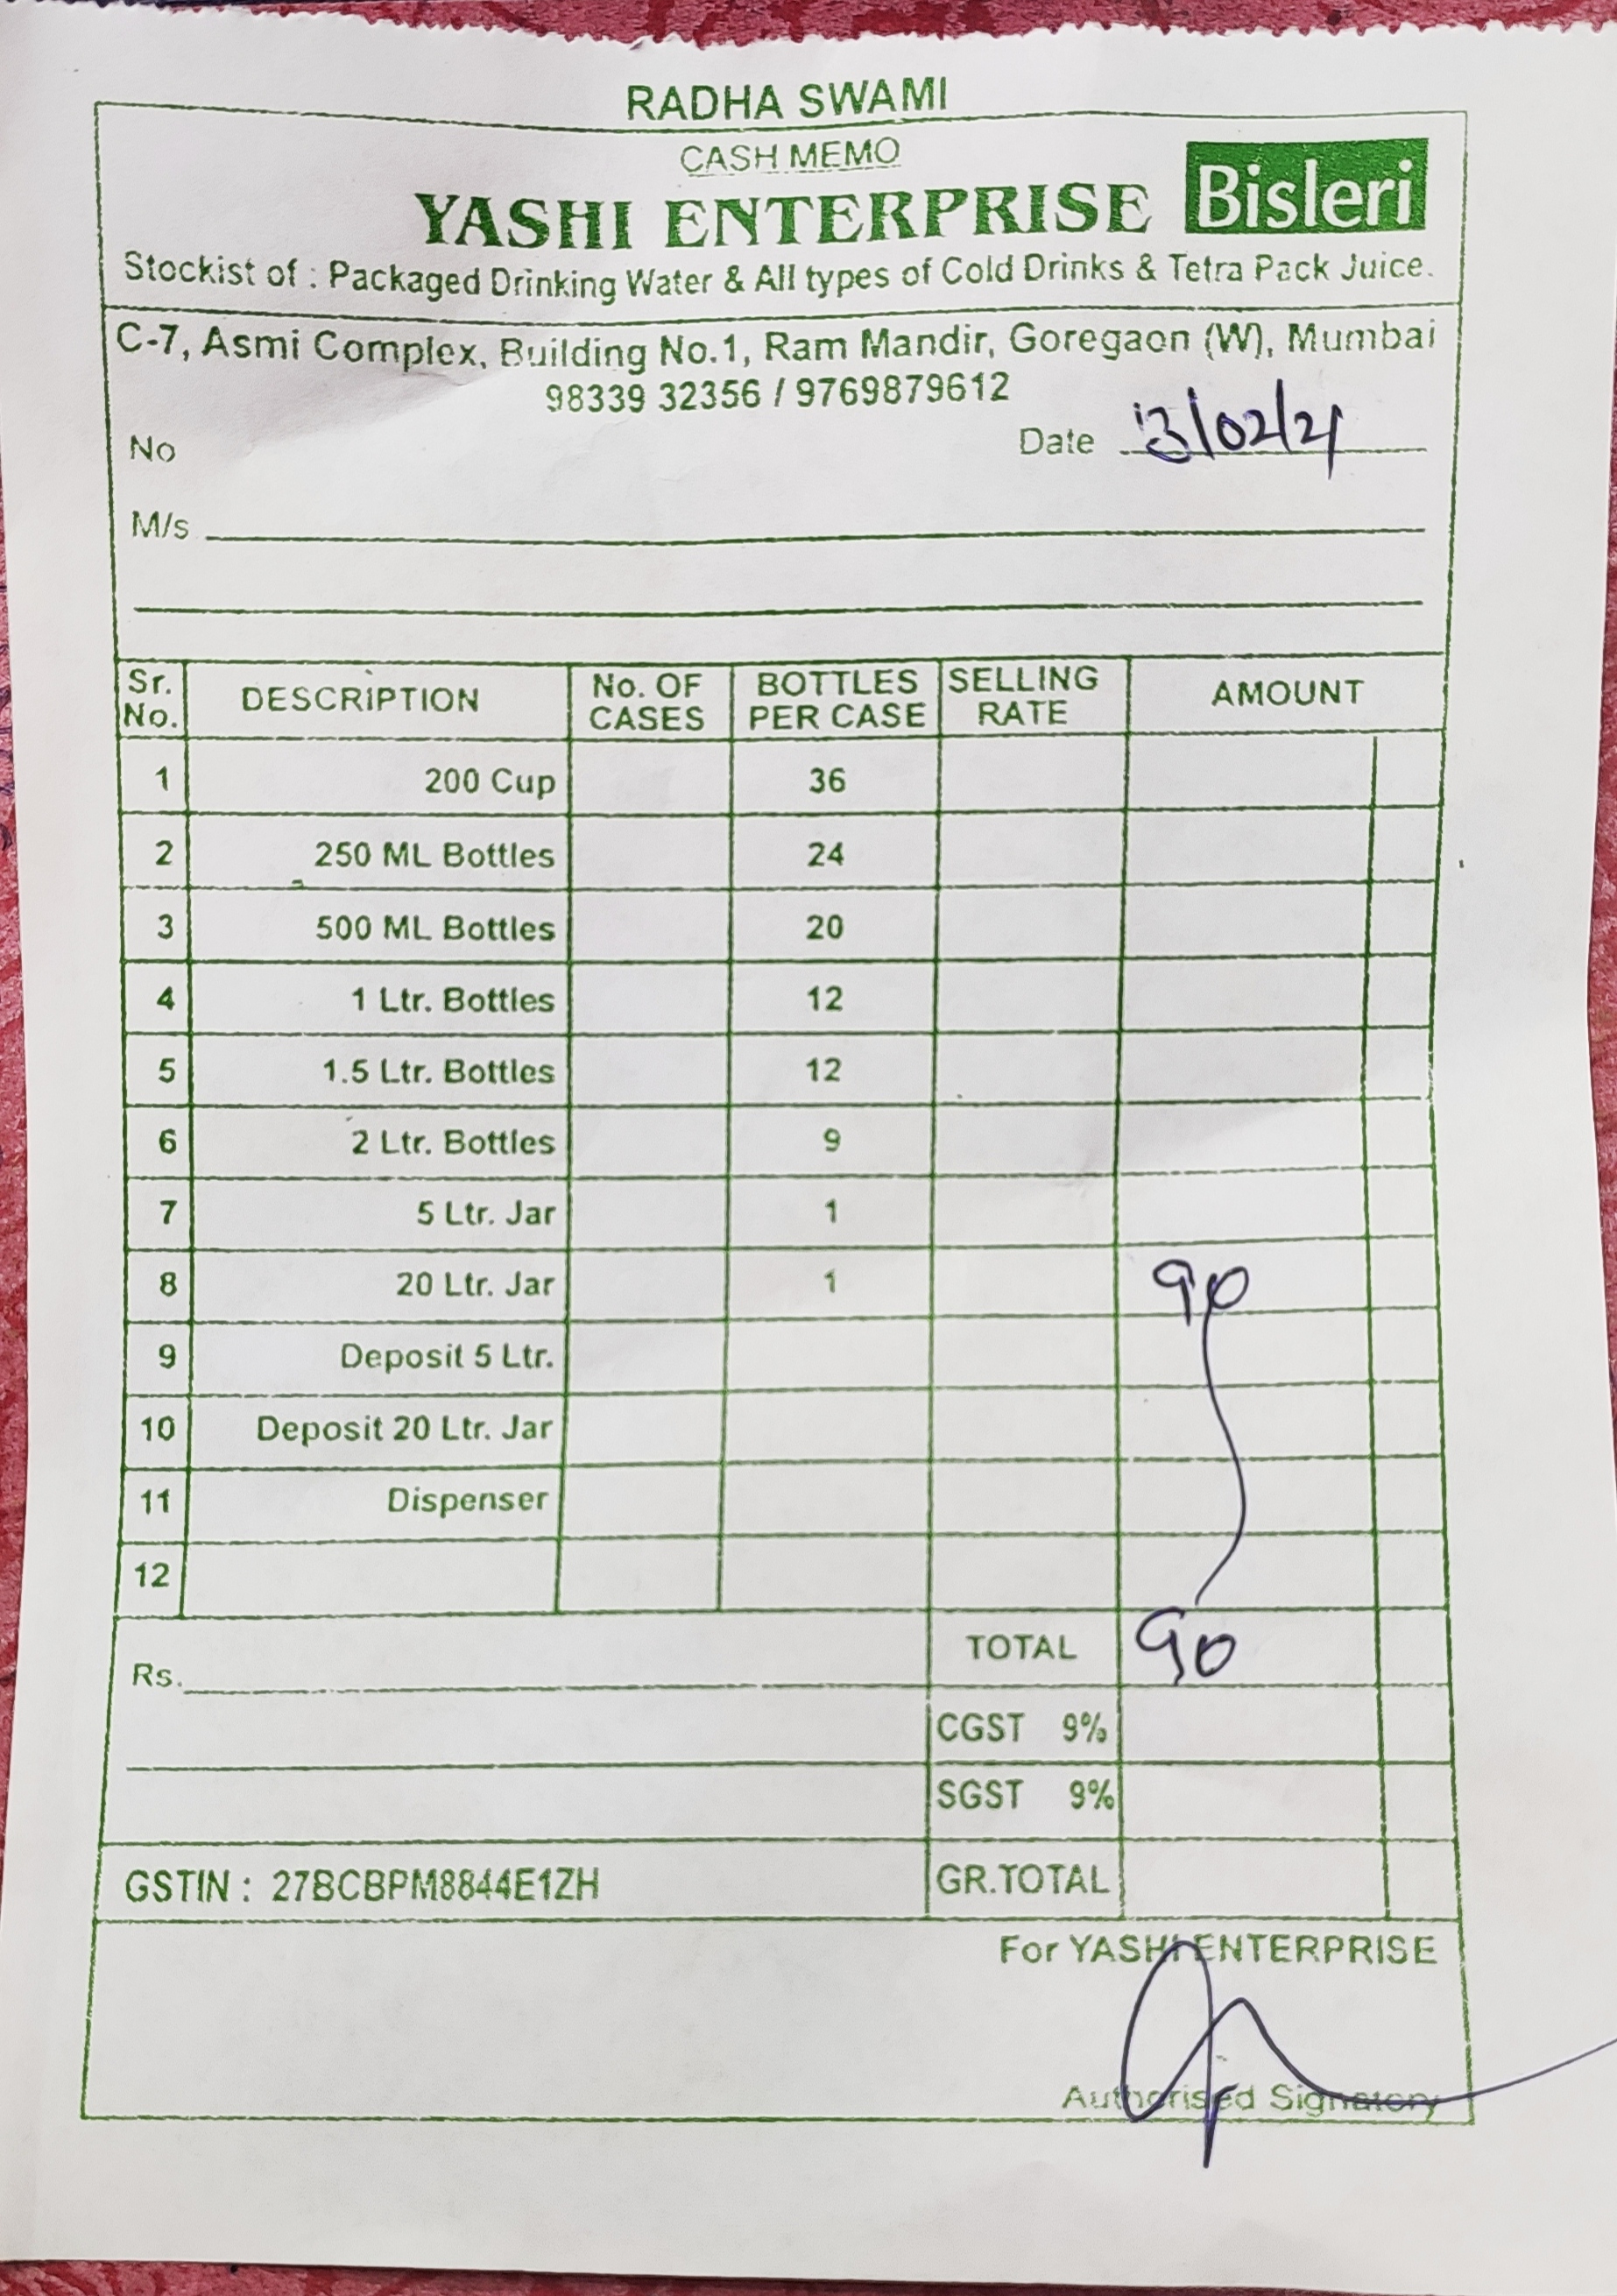 RADHA SWAMI
CASH MEMO
YASHI ENTERPRISE Bisleri
Stockist of : Packaged Drinking Water & All types of Cold Drinks & Tetra Pack Juice.
C-7, Asmi Complex, Building No.1, Ram Mandir, Goregaon (W), Mumbai
98339 32356 / 9769879612
No Date 13/02/21
M/s
Sr. No. DESCRIPTION No. OF CASES BOTTLES PER CASE SELLING RATE AMOUNT
1 200 Cup 36
2 250 ML Bottles 24
3 500 ML Bottles 20
4 1 Ltr. Bottles 12
5 1.5 Ltr. Bottles 12
6 2 Ltr. Bottles 9
7 5 Ltr. Jar 1
8 20 Ltr. Jar 1 90
9 Deposit 5 Ltr.
10 Deposit 20 Ltr. Jar
11 Dispenser
12
Rs. TOTAL 90
CGST 9%
SGST 9%
GSTIN : 27BCBPM8844E1ZH GR.TOTAL
For YASHI ENTERPRISE
Authorised Signatory